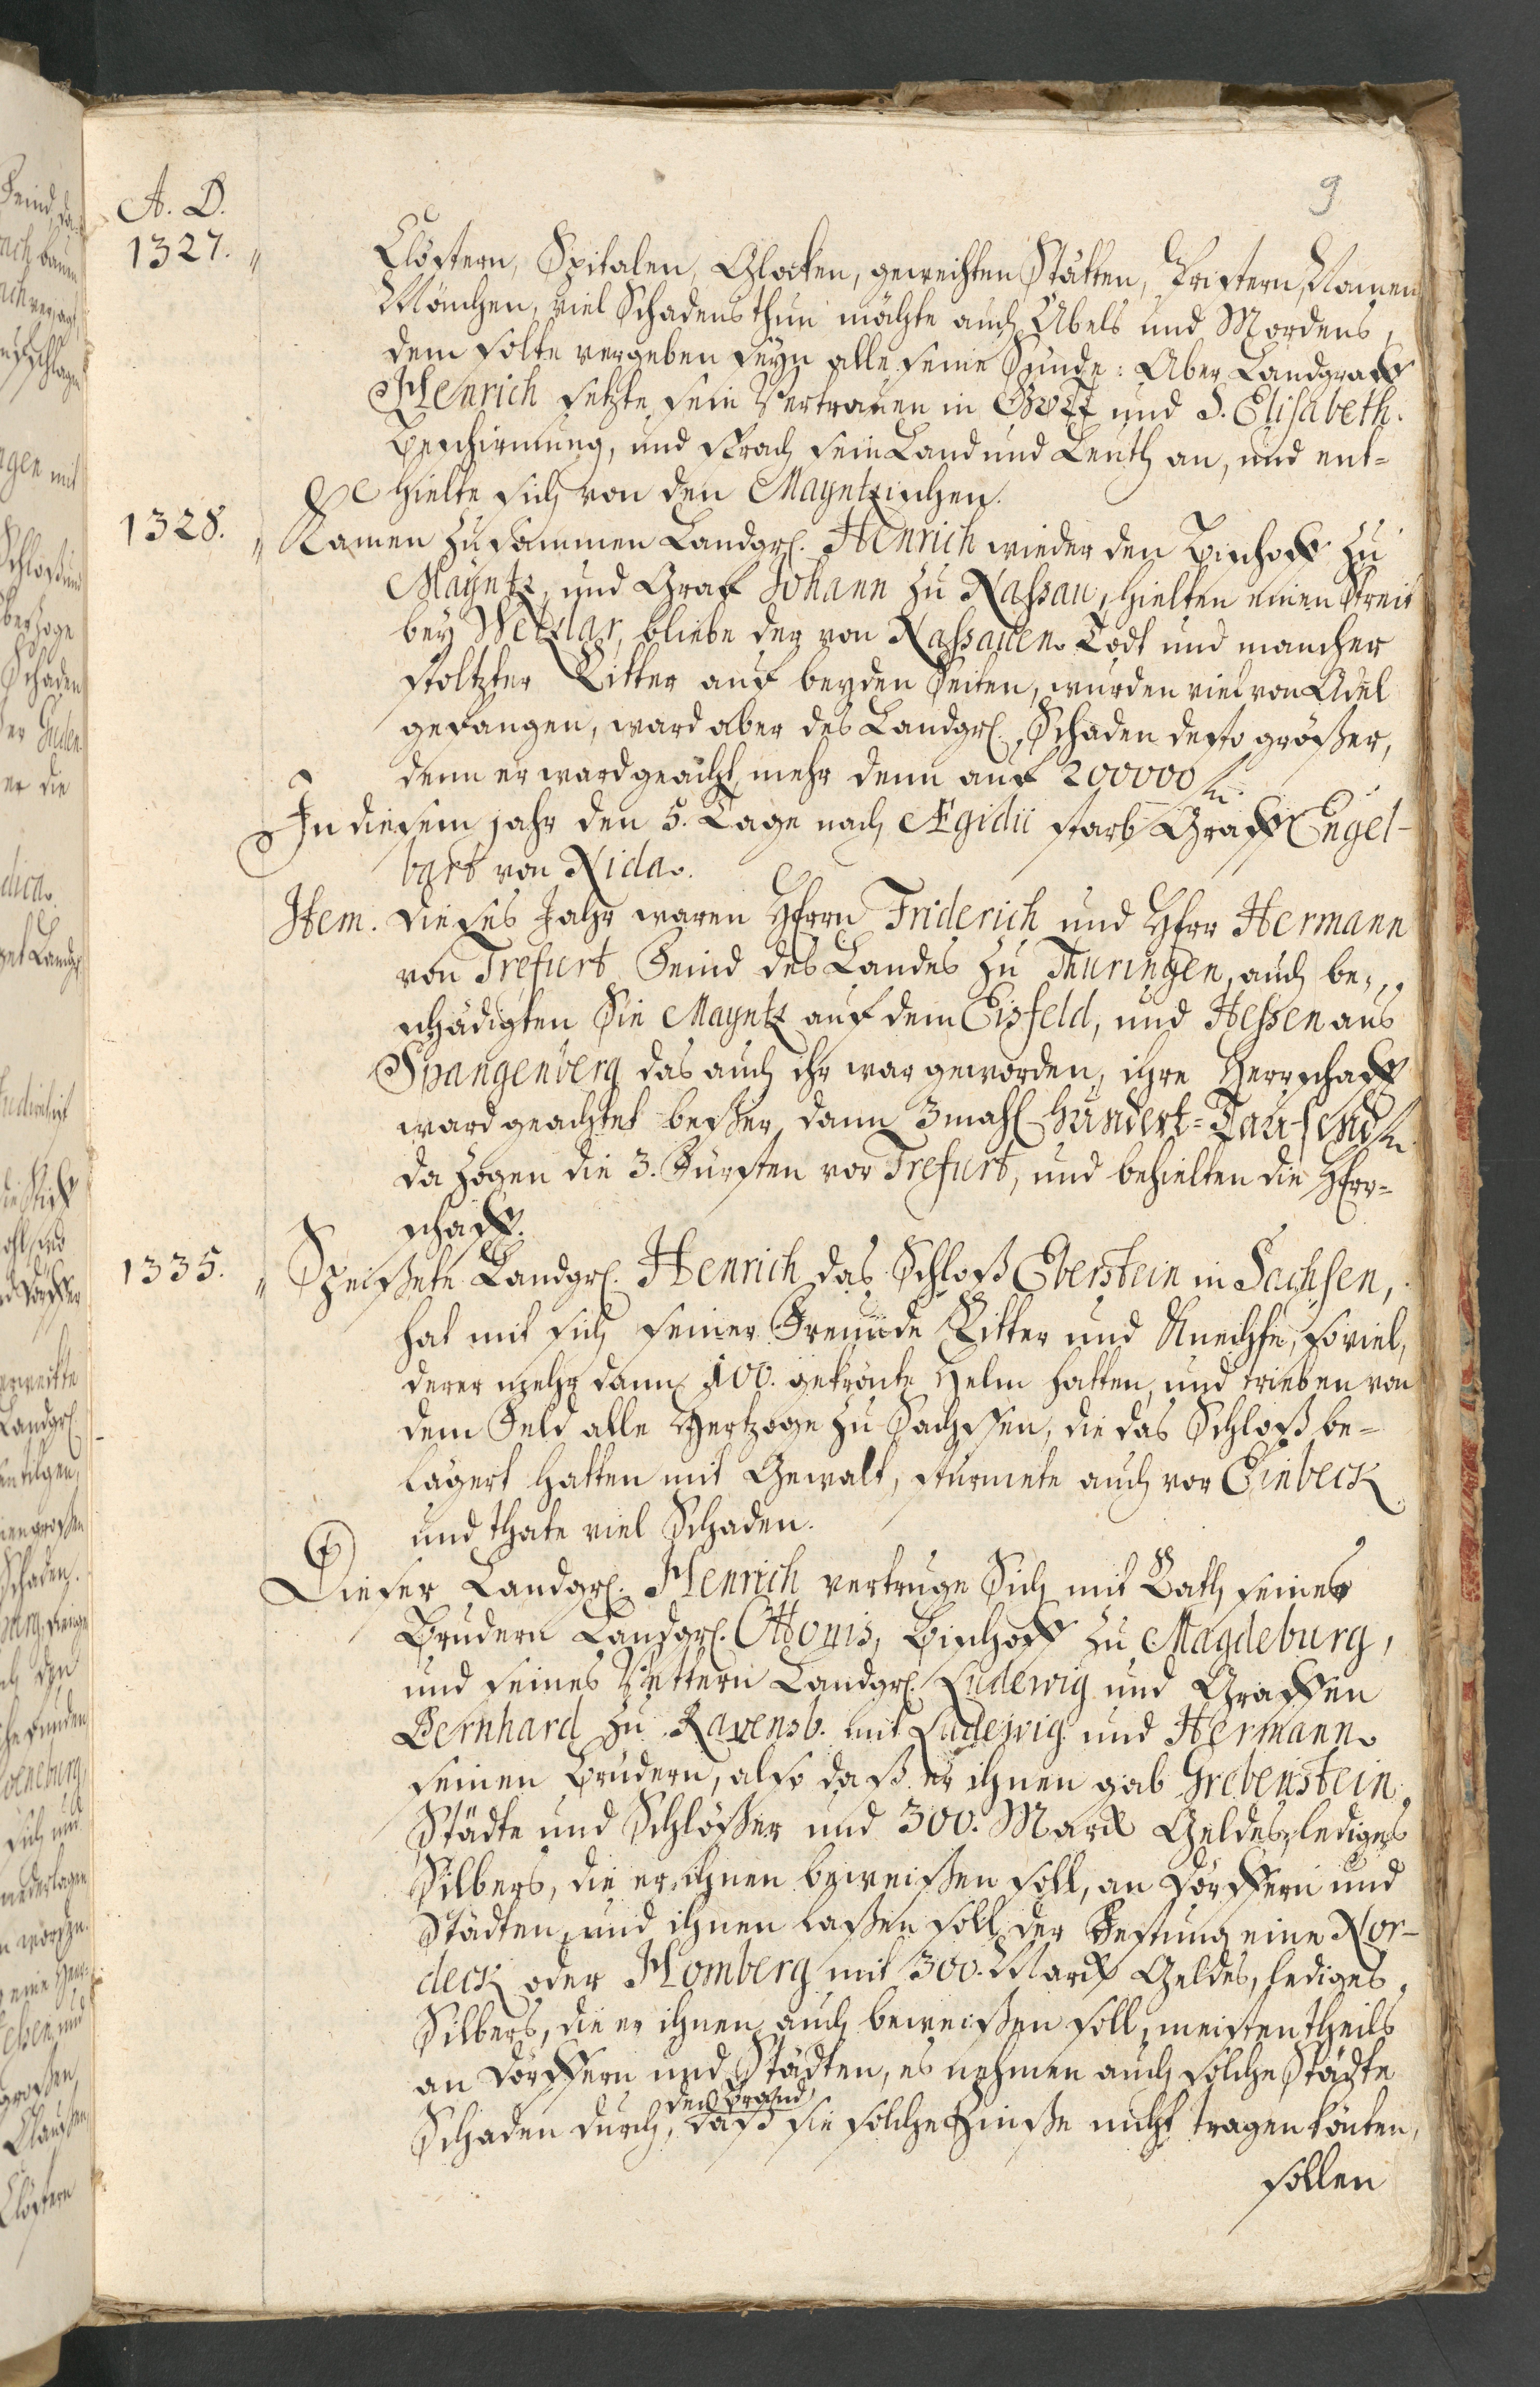 9
A. D.
1327. Clöstern, Spitalen, Glocken, geweihten Stätten, Pristern, Nonnen
Mönchen, viel Schadens thun möchte auch Übels und Mordens,
dem solte vergeben seyn alle seine Sünde: Aber Landgraff
Henrich setzte sein Vertrauen in Gott und S. Elisabeth.
Beschirmung, und sprach sein Land und Leuth an, und ent-
hielte sich von den Mayntzischen.
1328. Kamen zusammen Landgrf. Henrich wieder den Bischoff zu
Mayntz, und Graf Johann zu Nassau, hielten einen Streit
bey Wetzlar, bliebe der von Nassauen Todt und mancher
stoltzter Ritter auf beyden Seiten, wurden viel von Adel
gefangen, ward aber des Landgrf. Schaden desto größer,
denn er ward geacht mehr denn auf 200000 fl.
In diesem jahr den 5. Tage nach Ægidii starb Graff Engel-
bart von Nida.
Item. dieses Jahr waren Herrn Friderich und Herr Hermann
von Trefurt Feind des Landes zu Thuringen, auch be-
schädigten Sie Mayntz auf dem Eisfeld, und Hessen aus
Spangenberg das auch ihr war geworden, ihre Herrschafft
ward geachtet besser dann 3mahl hundert-Tausend fl.
da zogen die 3. Fürsten vor Trefurt, und behielten die Herr-
schafft.
1335. Speißete Landgrf. Henrich das Schloß Eberstein in Sachsen,
hat mit sich seiner Freunde Ritter und Knechte, so viel,
derer mehr dann 100. gekrönte Helm hatten, und trieben von
dem Feld alle Hertzoge zu Sachssen, die das Schloß be-
lägert hatten mit Gewalt, stürmete auch vor Einbeck
und thate viel Schaden.
Dieser Landgrf. Henrich vertruge Sich mit Rath seines
Brudern Landgrf. Ottonis, Bischoff zu Magdeburg,
und seines Vettern Landgrf. Ludewig und Graffen
Bernhard zu Ravensb. mit Ludewig und Hermann
seinen Brüdern, also daß er ihnen gab Grebenstein
Städte und Schlößer und 300. Marck Geldes, lediges
Silbers, die er ihnen beweißen soll, an Dörffern und
Städten, und ihnen laßen soll der Festung eine Nor-
deck oder Homberg mit 300. Marck Geldes, lediges
Silbers, die er ihnen auch beweißen soll, meistentheils
an Dörffern und Städten, es nehmen auch solche Städte
den Brand
Schaden durch, daß sie solche Zinße nicht tragen könten,
sollen